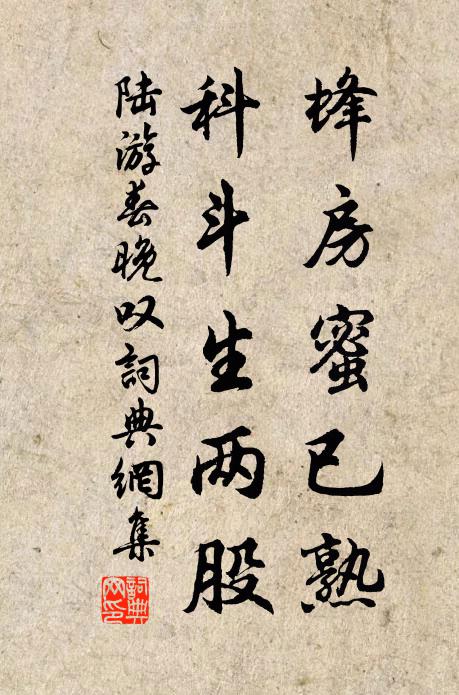 蜂房蜜已熟
科斗生两股
陆游春晚叹詞典網集
詞典
网印